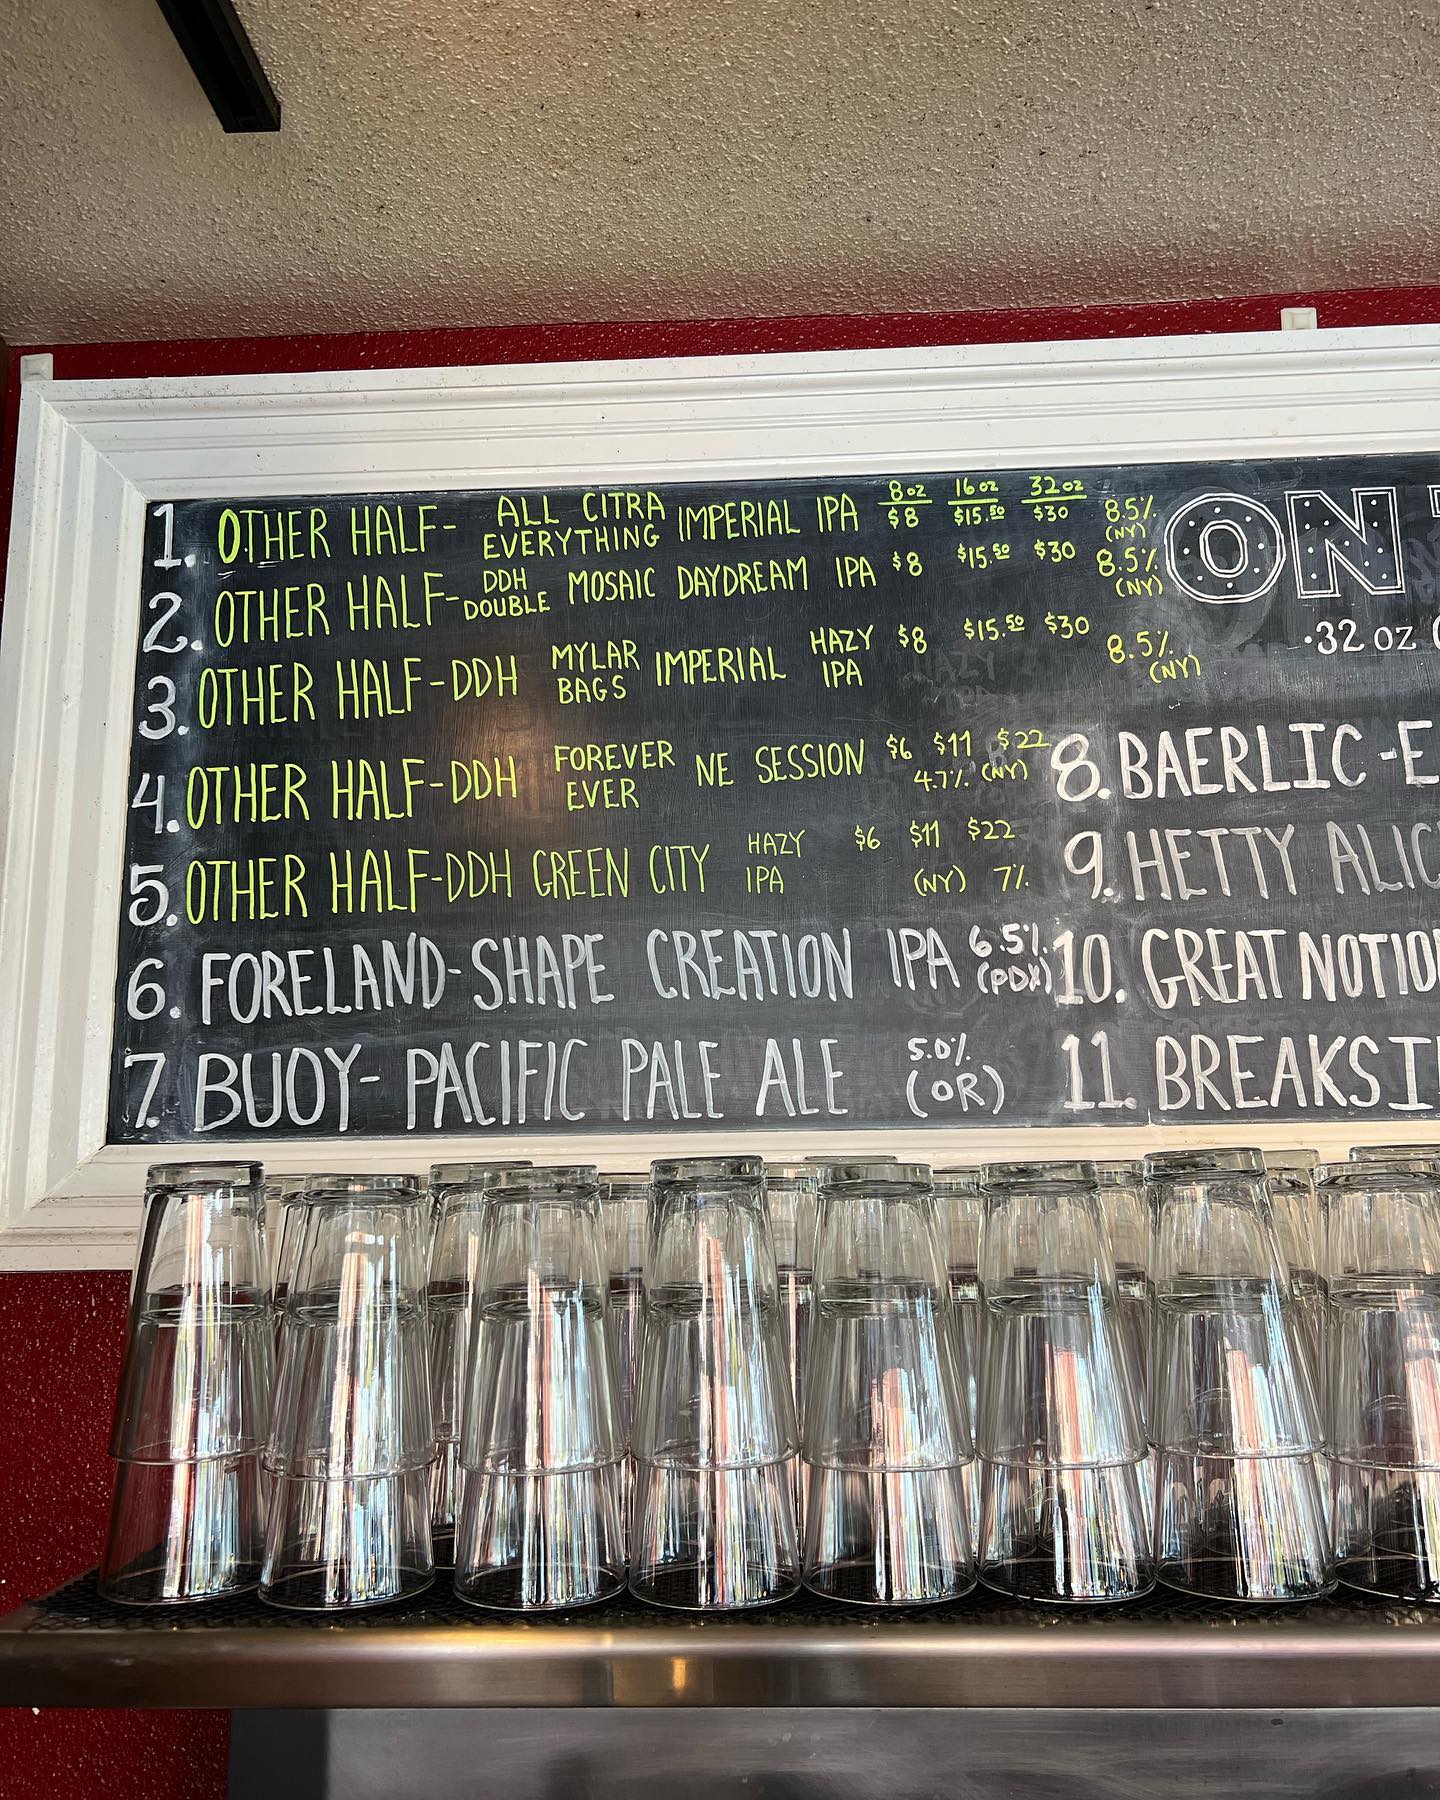 8oz 16oz 32oz
1. OTHER HALF- ALL CITRA EVERYTHING IMPERIAL IPA $8 $15.50 $30 8.5% (NY)
2. OTHER HALF- DDH DOUBLE MOSAIC DAYDREAM IPA $8 $15.50 $30 8.5% (NY)
3. OTHER HALF-DDH MYLAR BAGS IMPERIAL HAZY IPA $8 $15.50 $30 8.5% (NY)
4. OTHER HALF-DDH FOREVER EVER NE SESSION $6 $11 $22 4.7% (NY)
5. OTHER HALF-DDH GREEN CITY HAZY IPA $6 $11 $22 (NY) 7%
6. FORELAND-SHAPE CREATION IPA 6.5% (PDX)
7. BUOY- PACIFIC PALE ALE 5.0% (OR)
ON
·32 oz
8. BAERLIC -E
9. HETTY ALIC
10. GREAT NOTIO
11. BREAKSI